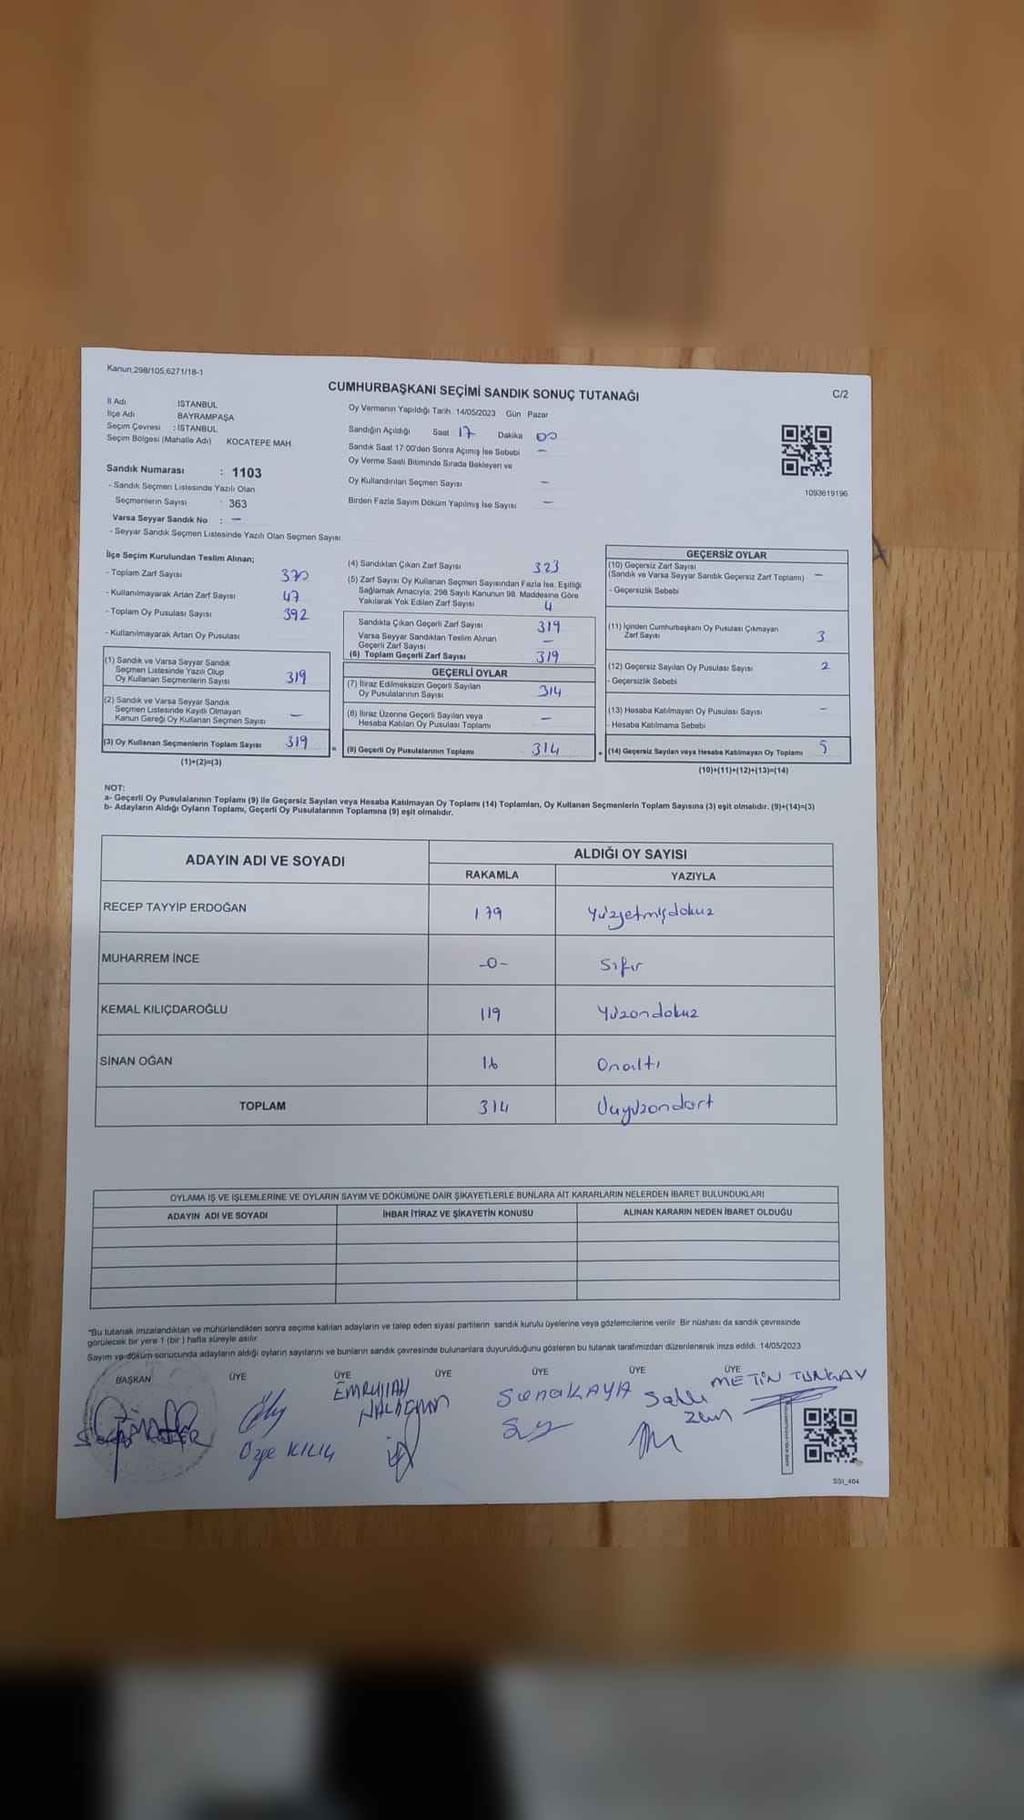 Kanun 298/105,6271/18-1
CUMHURBAŞKANI SEÇİMİ SANDIK SONUÇ TUTANAĞI
C/2
İl Adı İSTANBUL
İlçe Adı BAYRAMPAŞA
Seçim Çevresi : İSTANBUL
Seçim Bölgesi (Mahalle Adı) KOCATEPE MAH.
Sandık Numarası : 1103
- Sandık Seçmen Listesinde Yazılı Olan
Seçmenlerin Sayısı 363
Varsa Seyyar Sandık No : –
- Seyyar Sandık Seçmen Listesinde Yazılı Olan Seçmen Sayısı
Oy Vermenin Yapıldığı Tarih 14/05/2023 Gün Pazar
Sandığın Açıldığı Saat 17 Dakika 00
Sandık Saat 17:00'den Sonra Açımış İse Sebebi –
Oy Verme Saati Bitiminde Sırada Bekleyen ve
Oy Kullandırılan Seçmen Sayısı –
Birden Fazla Sayım Döküm Yapılmış İse Sayısı –
1093619196
İlçe Seçim Kurulundan Teslim Alınan;
- Toplam Zarf Sayısı 370
- Kullanılmayarak Artan Zarf Sayısı 47
- Toplam Oy Pusulası Sayısı 392
- Kullanılmayarak Artan Oy Pusulası
(1) Sandık ve Varsa Seyyar Sandık
Seçmen Listesinde Yazılı Olup
Oy Kullanan Seçmenlerin Sayısı 319
(2) Sandık ve Varsa Seyyar Sandık
Seçmen Listesinde Kayıtlı Olmayan
Kanun Gereği Oy Kullanan Seçmen Sayısı –
(3) Oy Kullanan Seçmenlerin Toplam Sayısı 319
(1)+(2)=(3)
(4) Sandıktan Çıkan Zarf Sayısı 323
(5) Zarf Sayısı Oy Kullanan Seçmen Sayısından Fazla İse, Eşitliği
Sağlamak Amacıyla; 298 Sayılı Kanunun 98. Maddesine Göre
Yakılarak Yok Edilen Zarf Sayısı 4
Sandıkta Çıkan Geçerli Zarf Sayısı 319
Varsa Seyyar Sandıktan Teslim Alınan
Geçerli Zarf Sayısı –
(6) Toplam Geçerli Zarf Sayısı 319
GEÇERLİ OYLAR
(7) İtiraz Edilmeksizin Geçerli Sayılan
Oy Pusulalarının Sayısı 314
(8) İtiraz Üzerine Geçerli Sayılan veya
Hesaba Katılan Oy Pusulası Toplamı –
(9) Geçerli Oy Pusulalarının Toplamı 314
GEÇERSİZ OYLAR
(10) Geçersiz Zarf Sayısı
(Sandık ve Varsa Seyyar Sandık Geçersiz Zarf Toplamı) –
- Geçersizlik Sebebi
(11) İçinden Cumhurbaşkanı Oy Pusulası Çıkmayan
Zarf Sayısı 3
(12) Geçersiz Sayılan Oy Pusulası Sayısı 2
- Geçersizlik Sebebi
(13) Hesaba Katılmayan Oy Pusulası Sayısı –
- Hesaba Katılmama Sebebi
(14) Geçersiz Sayılan veya Hesaba Katılmayan Oy Toplamı 5
(10)+(11)+(12)+(13)=(14)
NOT:
a- Geçerli Oy Pusulalarının Toplamı (9) ile Geçersiz Sayılan veya Hesaba Katılmayan Oy Toplamı (14) Toplamları, Oy Kullanan Seçmenlerin Toplam Sayısına (3) eşit olmalıdır. (9)+(14)=(3)
b- Adayların Aldığı Oyların Toplamı, Geçerli Oy Pusulalarının Toplamına (9) eşit olmalıdır.
ADAYIN ADI VE SOYADI
ALDIĞI OY SAYISI
RAKAMLA YAZIYLA
RECEP TAYYİP ERDOĞAN 179 Yüzyetmişdokuz
MUHARREM İNCE -0- Sıfır
KEMAL KILIÇDAROĞLU 119 Yüzondokuz
SİNAN OĞAN 16 Onaltı
TOPLAM 314 Üçyüzondört
OYLAMA İŞ VE İŞLEMLERİNE VE OYLARIN SAYIM VE DÖKÜMÜNE DAİR ŞİKAYETLERLE BUNLARA AİT KARARLARIN NELERDEN İBARET BULUNDUKLARI
ADAYIN ADI VE SOYADI İHBAR İTİRAZ VE ŞİKAYETİN KONUSU ALINAN KARARIN NEDEN İBARET OLDUĞU
*Bu tutanak imzalandıktan ve mühürlendikten sonra seçime katılan adayların ve talep eden siyasi partilerin sandık kurulu üyelerine veya gözlemcilerine verilir. Bir nüshası da sandık çevresinde
görülecek bir yere 1 (bir) hafta süreyle asılır.
Sayım ve döküm sonucunda adayların aldığı oyların sayılarını ve bunların sandık çevresinde bulunanlara duyurulduğunu gösteren bu tutanak tarafımızdan düzenlenerek imza edildi. 14/05/2023
BAŞKAN ÜYE ÜYE ÜYE ÜYE ÜYE ÜYE
Özge KILIÇ
EMRULLAH
Sena KAYA
METİN TUNÇAY
SSI_404